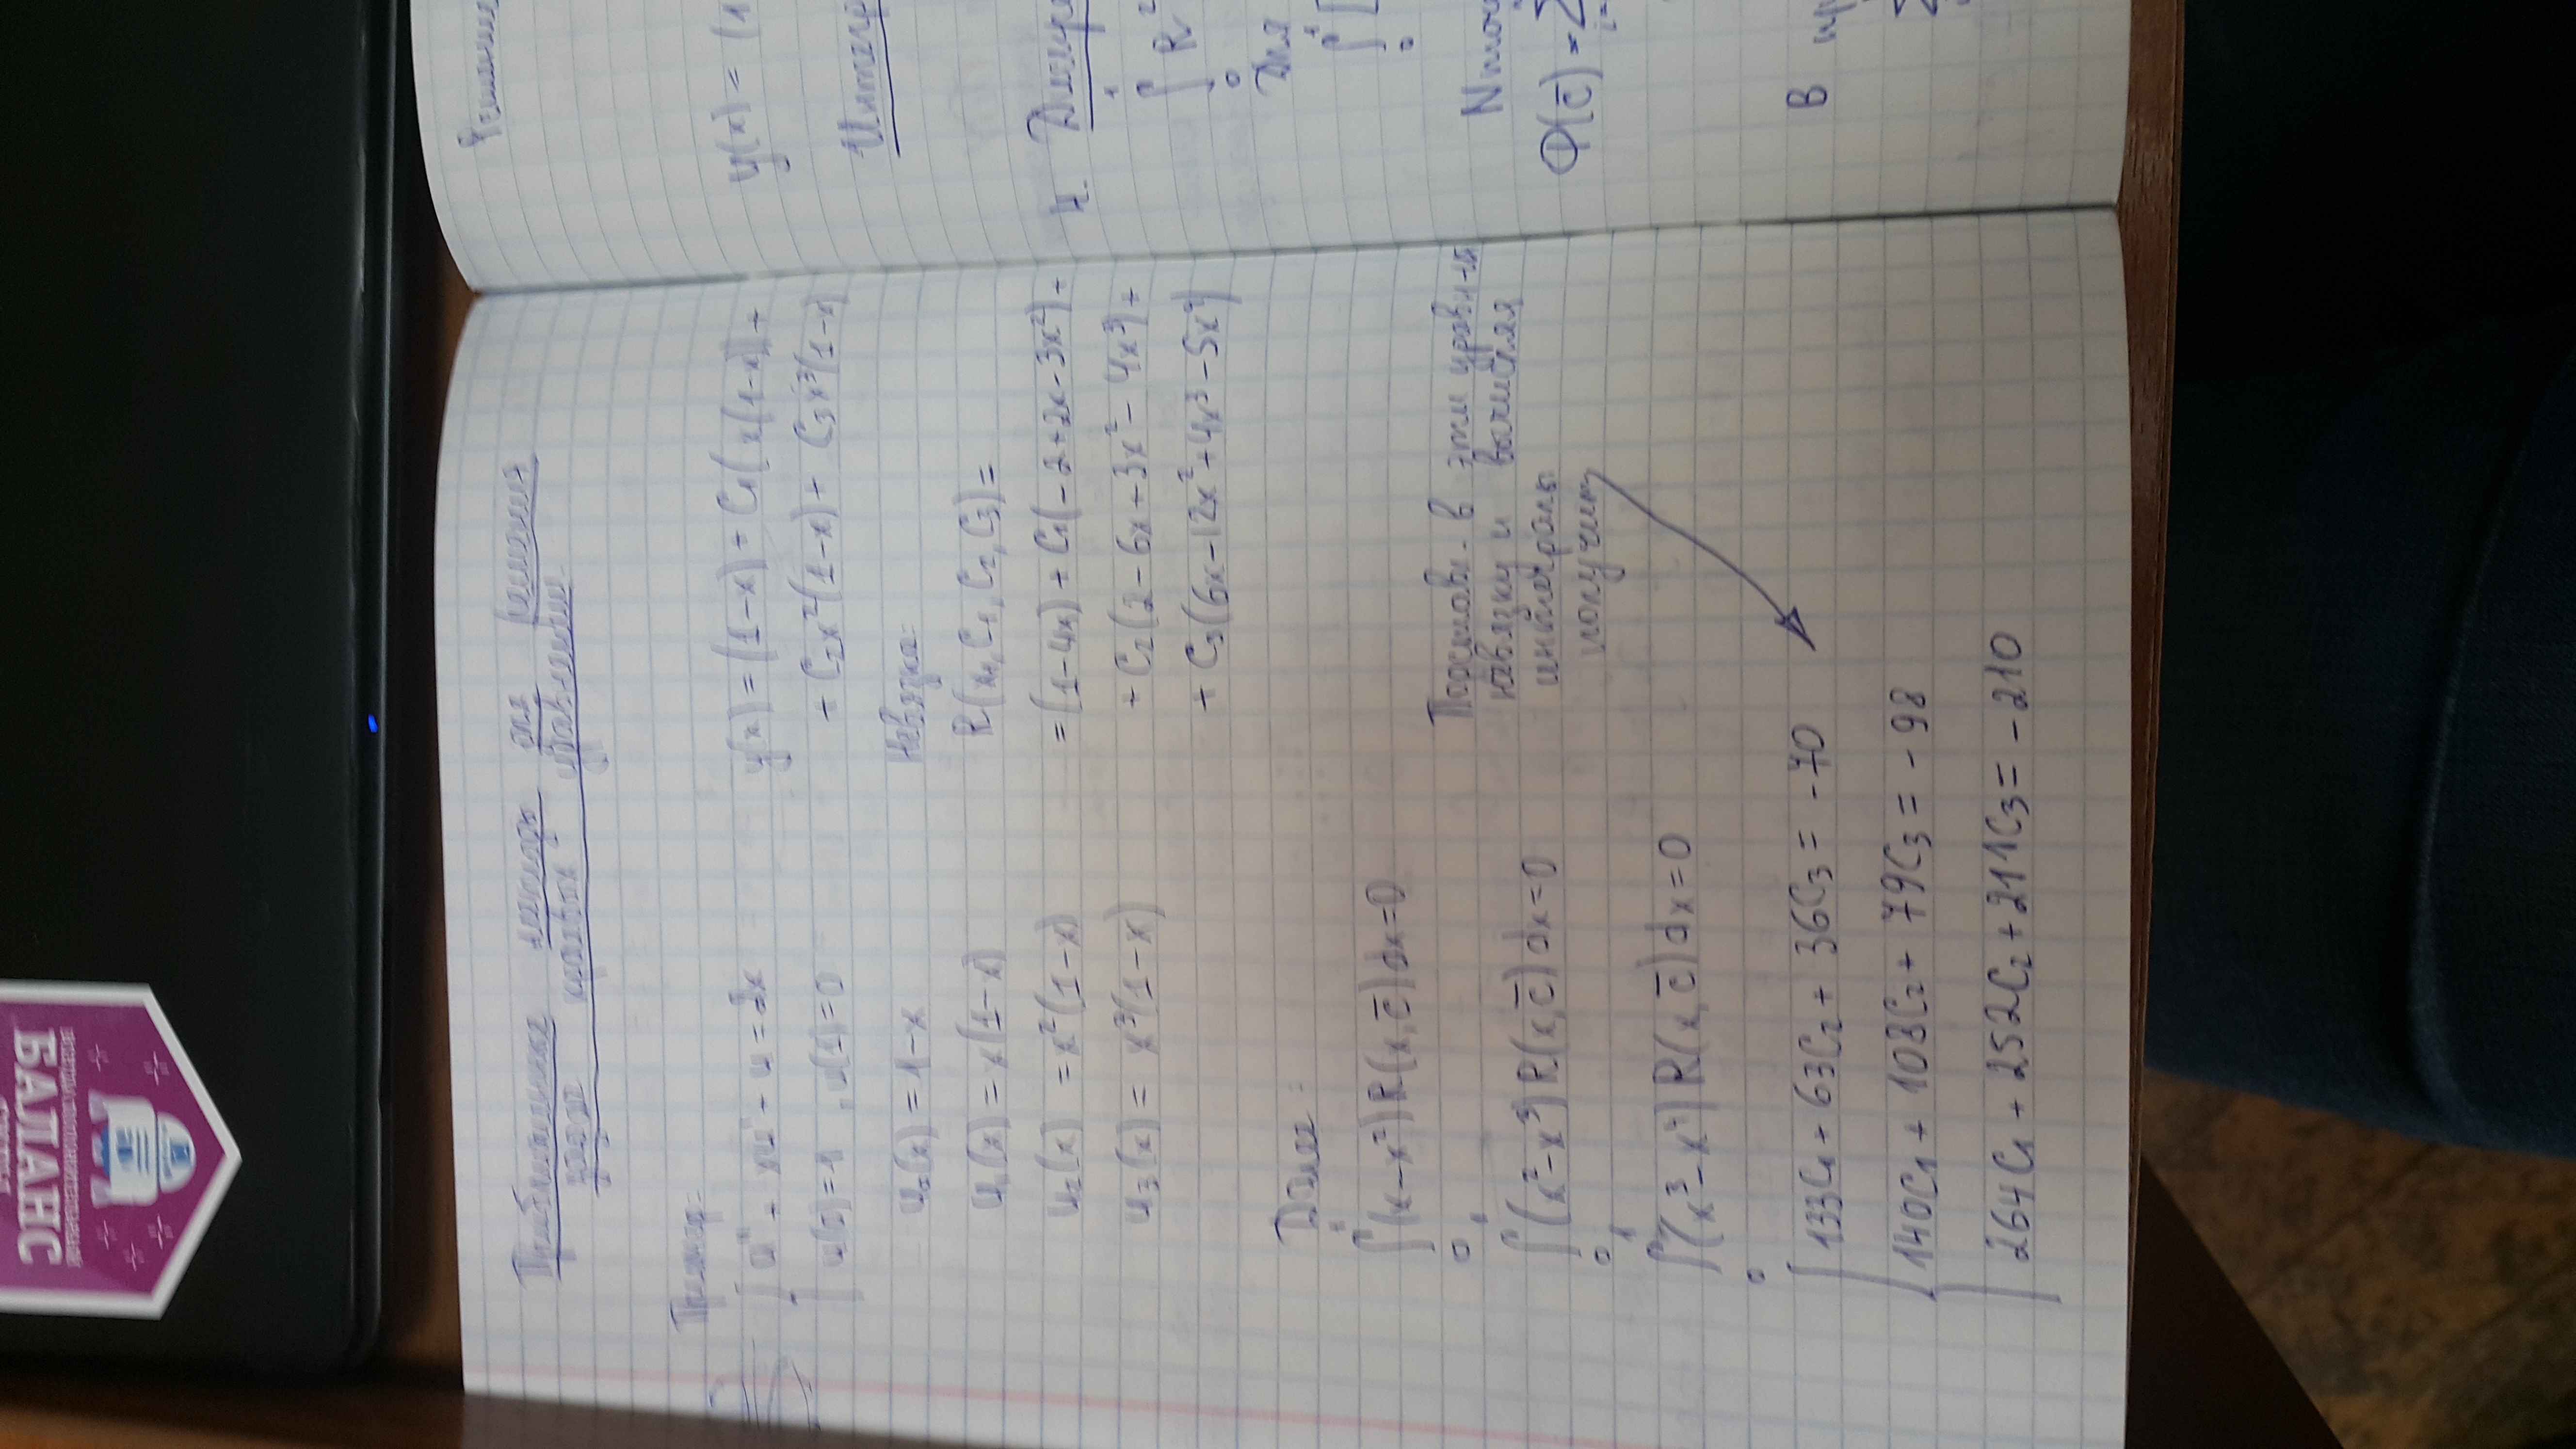 БАЛАНС
Приближенные методы для решения
задач краевых уравнений
Пример:
u" + xu' + u = 2x
u(0)=1, u(1)=0
u₀(x) = 1-x
u₁(x) = x(1-x)
u₂(x) = x²(1-x)
u₃(x) = x³(1-x)
y(x) = (1-x) + C₁(x(1-x)) +
+ C₂x²(1-x) + C₃x³(1-x)
Невязка:
R(x, C₁, C₂, C₃) =
= (1-4x) + C₁(-2+2x-3x²) +
+ C₂(2-6x+3x²-4x³) +
+ C₃(6x-12x²+4x³-5x⁴)
Далее:
∫₀¹(x-x²)R(x,c̄)dx=0
∫₀¹(x²-x³)R(x,c̄)dx=0
∫₀¹(x³-x⁴)R(x,c̄)dx=0
Подставл. в эти уравн-ия
невязку и вычисляя
интегралы
получим
133C₁ + 63C₂ + 36C₃ = -70
140C₁ + 108C₂ + 79C₃ = -98
264C₁ + 252C₂ + 211C₃ = -210
Решение
y(x) = (1
Интегр
4. Дискре
∫₀¹ R²
Для
∫₀¹ [
N точ
Φ(c̄) = Σ
В пр